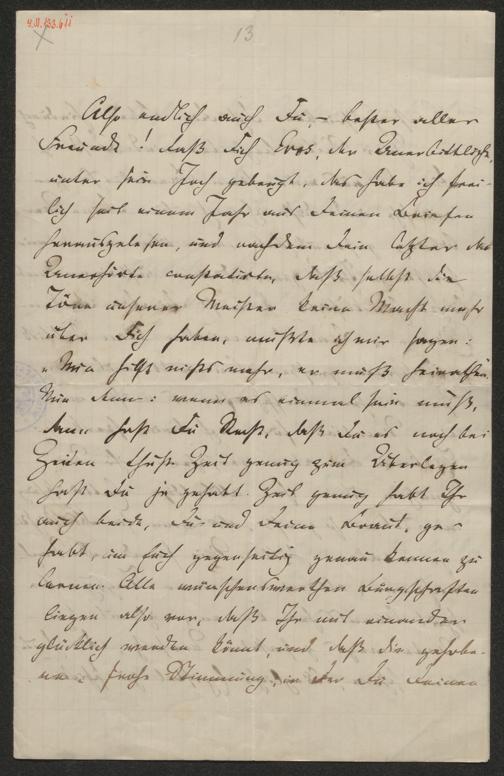 4.VI.133.6ii
13
Also endlich auch Du, – bester aller
Freunde! Daß Dich Eros, der Unerbittliche,
unter sein Joch gebeugt, das habe ich frei-
lich seit einem Jahr aus Deinen Briefen
herausgelesen, und nachdem Dein letzter das
Unerhörte constatirte, daß selbst die
Töne unserer Meister keine Macht mehr
über Dich haben, mußte ich mir sagen:
"Nun hilft nichts mehr, er muß heirathen.
Nun denn: wenn es einmal sein muß,
dann hast Du Recht, daß Du es noch bei
Zeiten thust. Zeit genug zum Überlegen
hast Du ja gehabt. Zeit genug habt Ihr
auch beide, Du und Deine Braut, ge-
habt, um Euch gegenseitig genau kennen zu
lernen. Alle wünschenswerthen Bürgschaften
liegen also vor, daß Ihr mit einander
glücklich werden könnt, und daß die gehobe-
ne, frohe Stimmung, in der Du Deinen